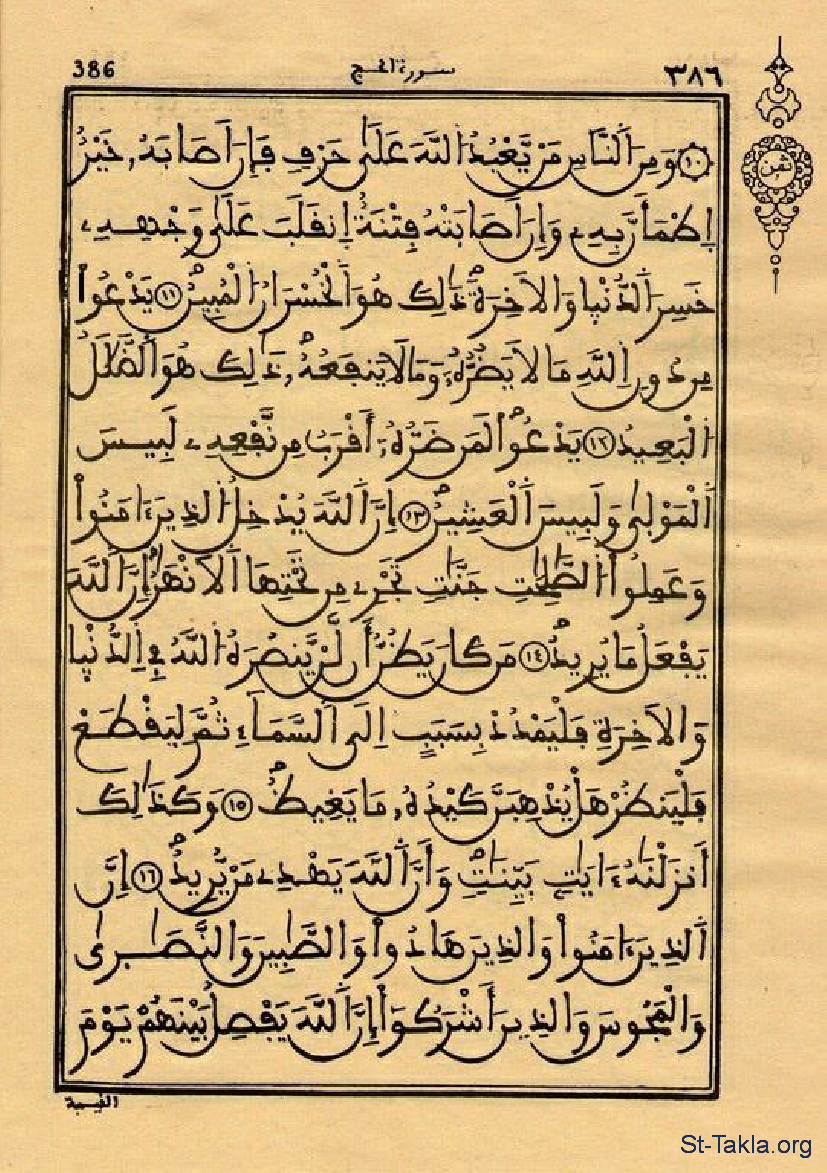 386 سورة الحج ٣٨٦
ثمن
١٠ وَمِنَ اَلنَّاسِ مَنْ يَّعْبُدُ اللَّهَ عَلَىٰ حَرْفٍ فَإِنَ اَصَابَهُۥ خَيْرٌ
اِطْمَأَنَّ بِهِۦ وَإِنَ اَصَابَتْهُ فِتْنَةٌ اِنقَلَبَ عَلَىٰ وَجْهِهِۦ
خَسِرَ اَلدُّنْيَا وَالَاخِرَةَ ذَٰلِكَ هُوَ اَلْخُسْرَانُ اُلْمُبِينُ ١١ يَدْعُواْ
مِن دُونِ اِللَّهِ مَا لَا يَضُرُّهُۥ وَمَا لَا يَنفَعُهُۥ ذَٰلِكَ هُوَ اَلضَّلَٰلُ
اُلْبَعِيدُ ١٢ يَدْعُواْ لَمَن ضَرُّهُۥ أَقْرَبُ مِن نَّفْعِهِۦ لَبِيسَ
اَلْمَوْلَىٰ وَلَبِيسَ اَلْعَشِيرُ ١٣ إِنَّ اَللَّهَ يُدْخِلُ اُلذِينَ ءَامَنُواْ
وَعَمِلُواْ اُلصَّٰلِحَٰتِ جَنَّٰتٍ تَجْرِے مِن تَحْتِهَا اَلَانْهَٰرُ إِنَّ اَللَّهَ
يَفْعَلُ مَا يُرِيدُ ١٤ مَن كَانَ يَظُنُّ أَن لَّنْ يَّنصُرَهُ اُللَّهُ فِے اِلدُّنْيَا
وَالَاخِرَةِ فَلْيَمْدُدْ بِسَبَبٍ اِلَى اَلسَّمَآءِ ثُمَّ لِيَقْطَعْ
فَلْيَنظُرْ هَلْ يُذْهِبَنَّ كَيْدُهُۥ مَا يَغِيظُ ١٥ وَكَذَٰلِكَ
أَنزَلْنَٰهُ ءَايَٰتٍۢ بَيِّنَٰتٍ وَأَنَّ اَللَّهَ يَهْدِے مَنْ يُّرِيدُ ١٦ إِنَّ
اَلذِينَ ءَامَنُواْ وَالذِينَ هَادُواْ وَالصَّٰبِينَ وَالنَّصَٰرَىٰ
وَالْمَجُوسَ وَالذِينَ أَشْرَكُوٓاْ إِنَّ اَللَّهَ يَفْصِلُ بَيْنَهُمْ يَوْمَ
St-Takla.org